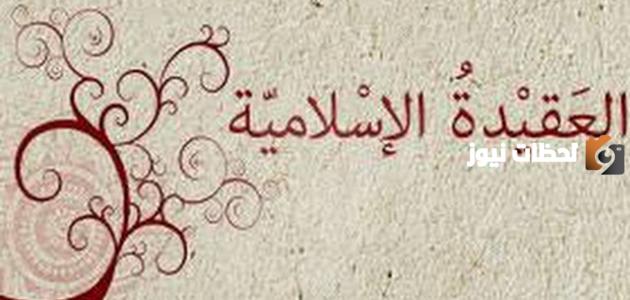 العَقيْدةُ الإسْلاميّة
لحظات نيوز